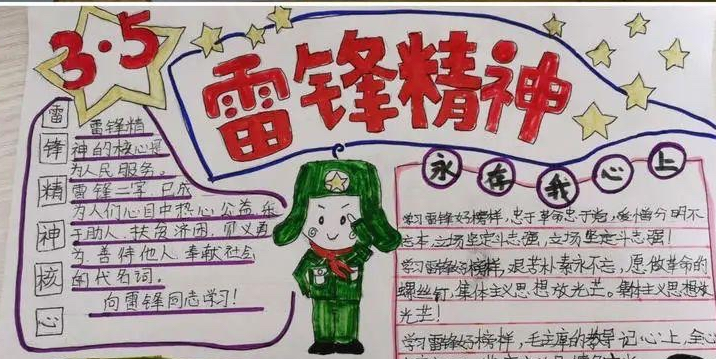 3·5
雷锋精神
雷锋精神核心
雷锋精
神的核心是
为人民服务。
雷锋二字,已成
为人们心目中热心公益、乐
于助人、扶贫济困、见义勇
为、善待他人、奉献社会
的代名词。
向雷锋同志学习!
永在我心上
学习雷锋好榜样,忠于革命忠于党,爱憎分明不
忘本,立场坚定斗志强,立场坚定斗志强!
学习雷锋好榜样,艰苦朴素永不忘,愿做革命的
螺丝钉,集体主义思想放光芒。集体主义思想放
光芒!
学习雷锋好榜样,毛主席的教导记心上,全心